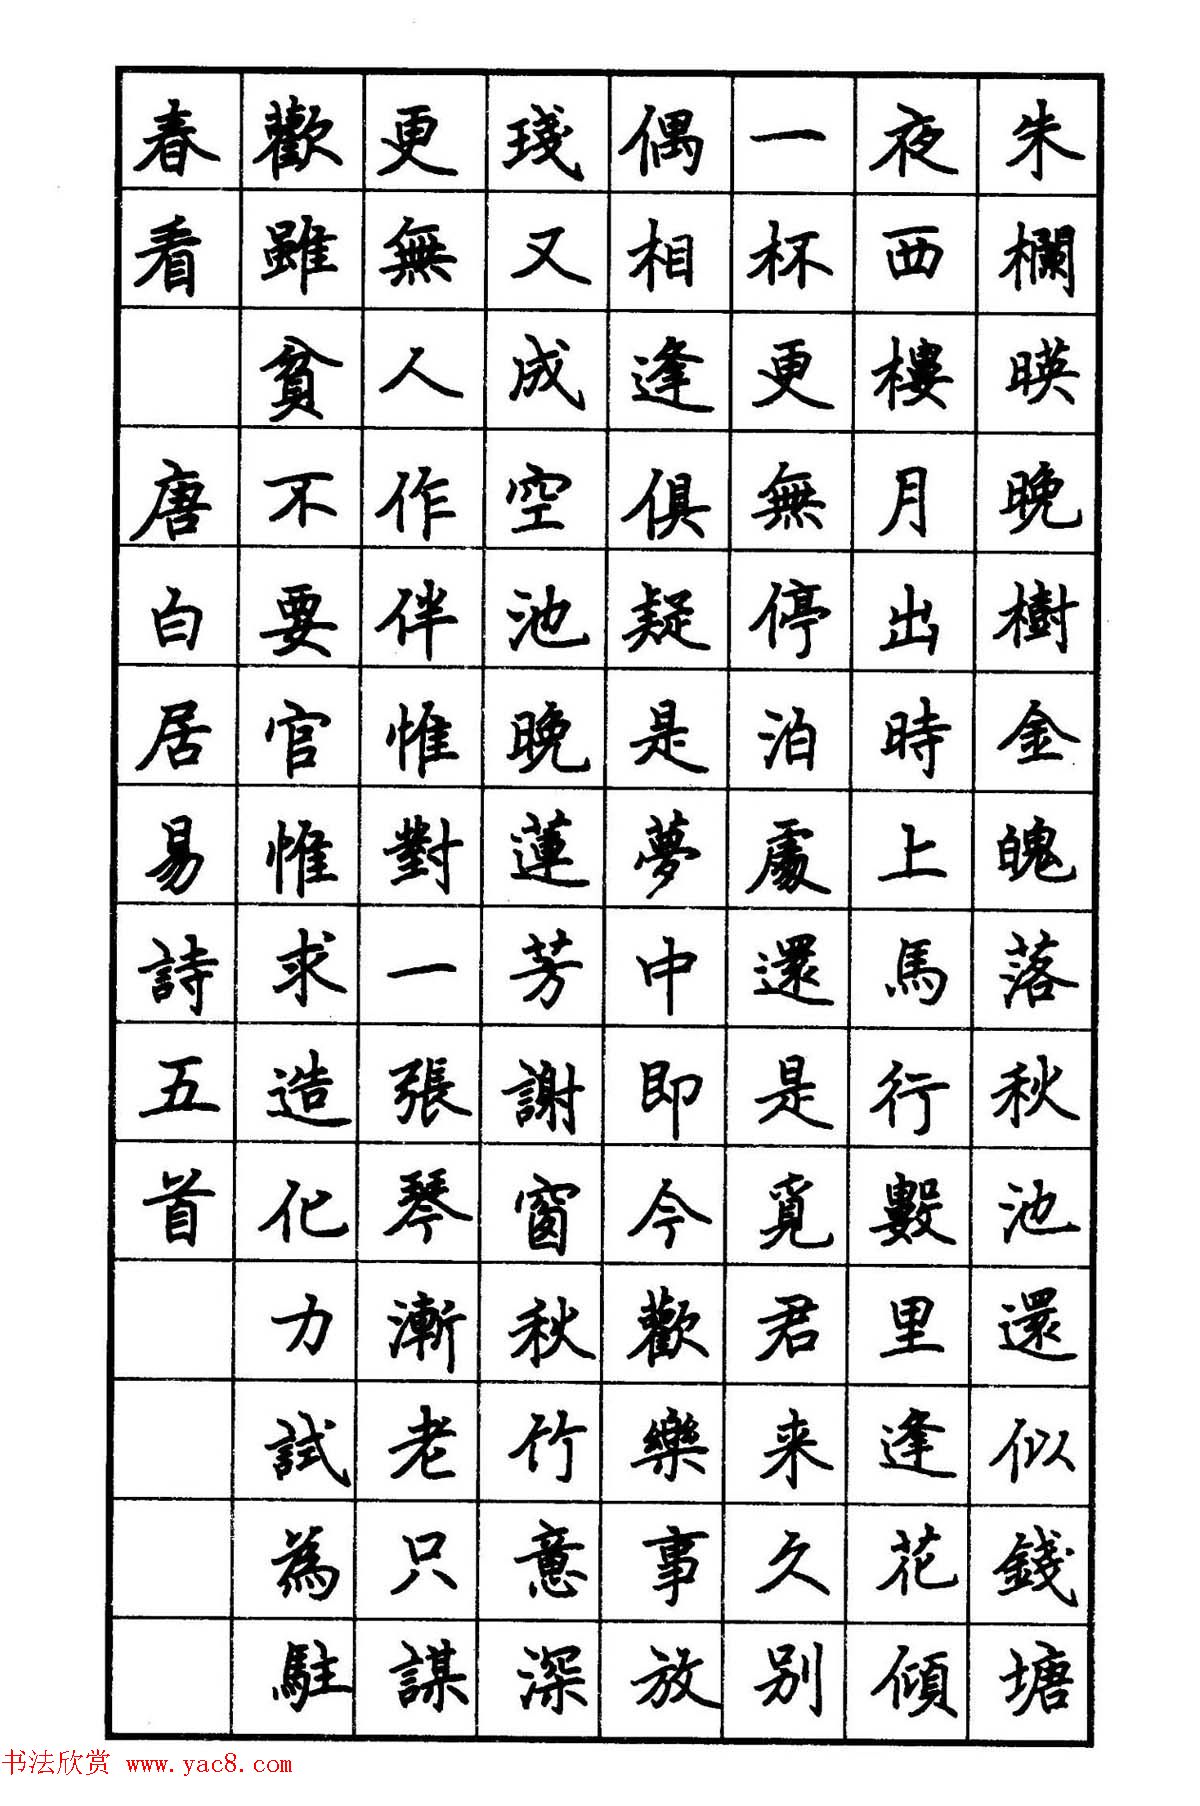 朱欄暎晚樹金魄落秋池還似錢塘
夜西樓月出時上馬行數里逢花傾
一杯更無停泊處還是覓君来久别
偶相逢俱疑是夢中即今歡樂事放
琖又成空池晚蓮芳謝窗秋竹意深
更無人作伴惟對一張琴漸老只謀
歡雖貧不要官惟求造化力試為駐
春看 唐白居易詩五首
书法欣赏 www.yac8.com